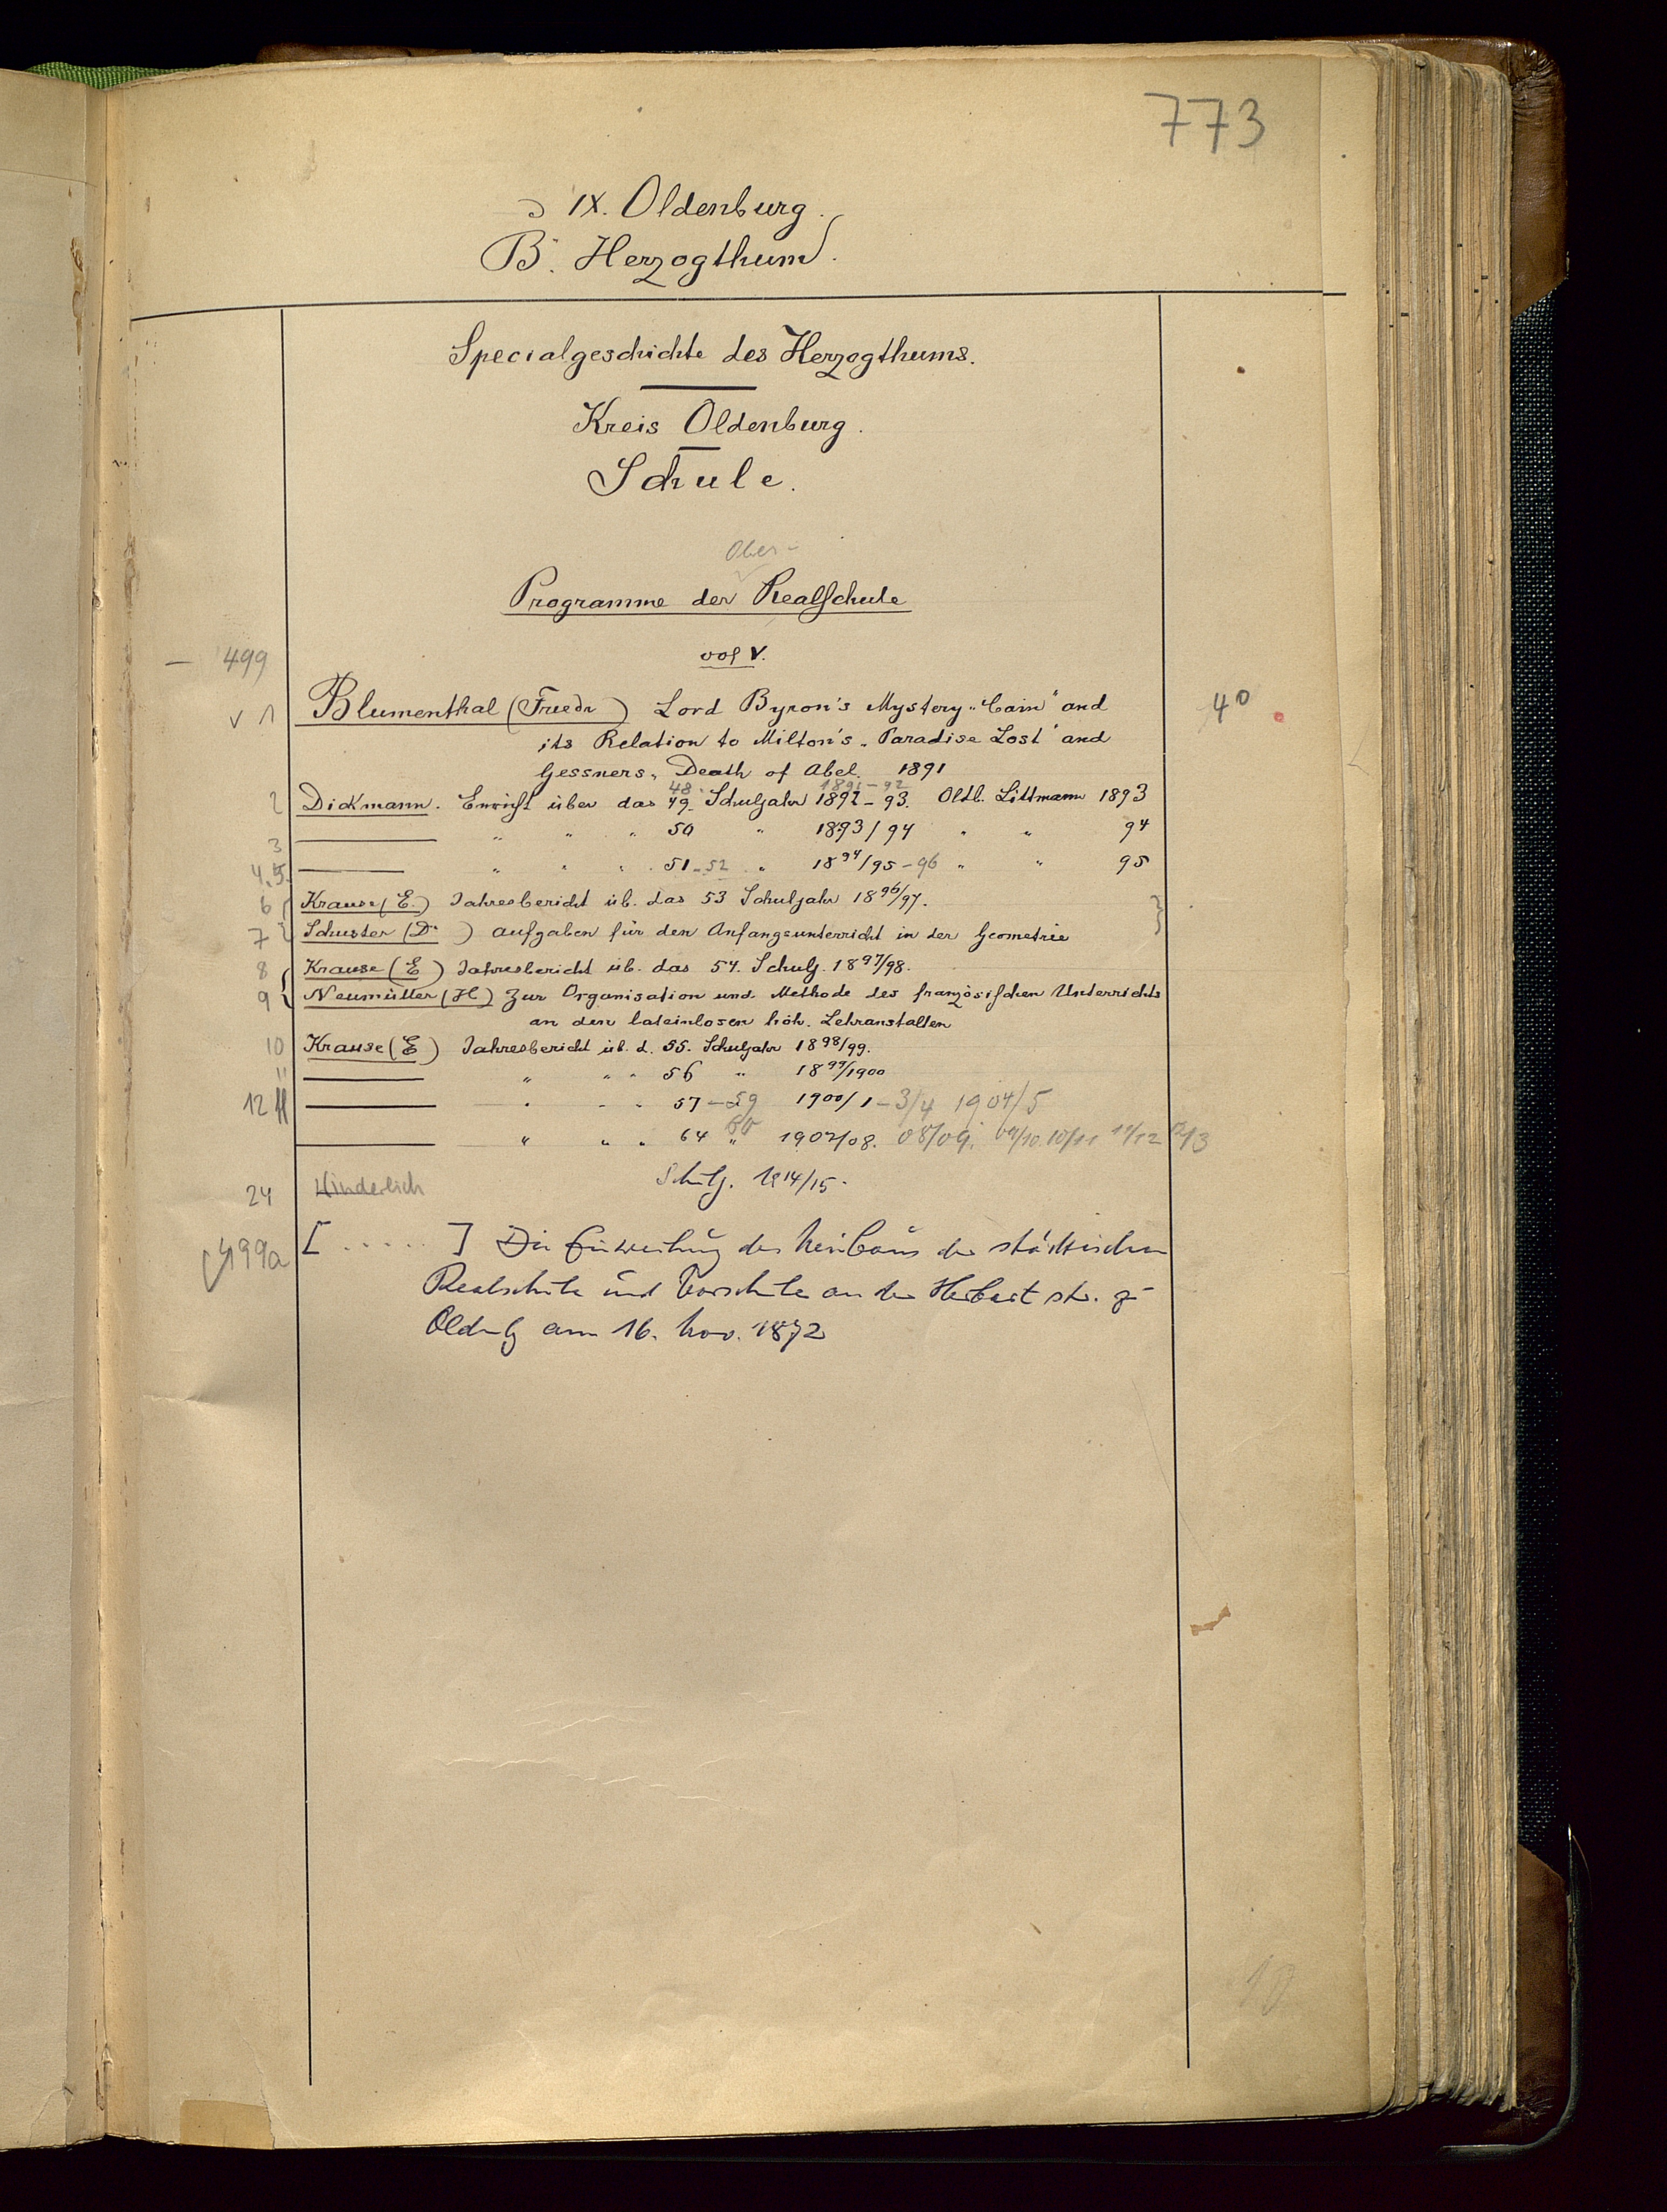 773
IX. Oldenburg.
B. Herzogthum.
Specialgeschichte des Herzogthums.
Kreis Oldenburg.
Schule.
Ober-
Programme der Realschule
vol V.
— 499
v 1 Blumenthal (Friedr ) Lord Byron's Mystery „Cain" and 4°
its Relation to Milton's „Paradise Lost" and
Gessners „Death of Abel. 1891
48 1891-92
2 Dickmann. über das 49. Schuljahr 1892-93. Oldb. Littmann 1893
3 — " " " 50 " 1893/94 " " 94
4.5. — " " " 51-52 " 1894/95-96 " " 95
6 Krause (E.) Jahresbericht üb. das 53 Schuljahr 1896/97.
7 Schuster (Dr ) Aufgaben für den Anfangsunterricht in der Geometrie
8 Krause (E ) Jahresbericht üb. das 54. Schulj. 1897/98.
9 Neumüller (H) Zur Organisation und Methode des französischen Unterrichts
an den lateinlosen höh. Lehranstalten
10 Krause (E ) Jahresbericht üb. d. 55. Schuljahr 1898/99.
11 — " " " 56 " 1899/1900
12 — " " " 57-59 1900/1-3/4 1904/5
— " " " 64 " 1907/08. 08/09. 09/10. 10/11 11/12 12/3
24 Hinderlich Schulj. 1914/15.
499a [ ..... ] Die Einweihung des Neubaus der städtischen
Realschule und Vorschule an der Herbart str. z
Oldenbg am 16. Nov. 1872
10